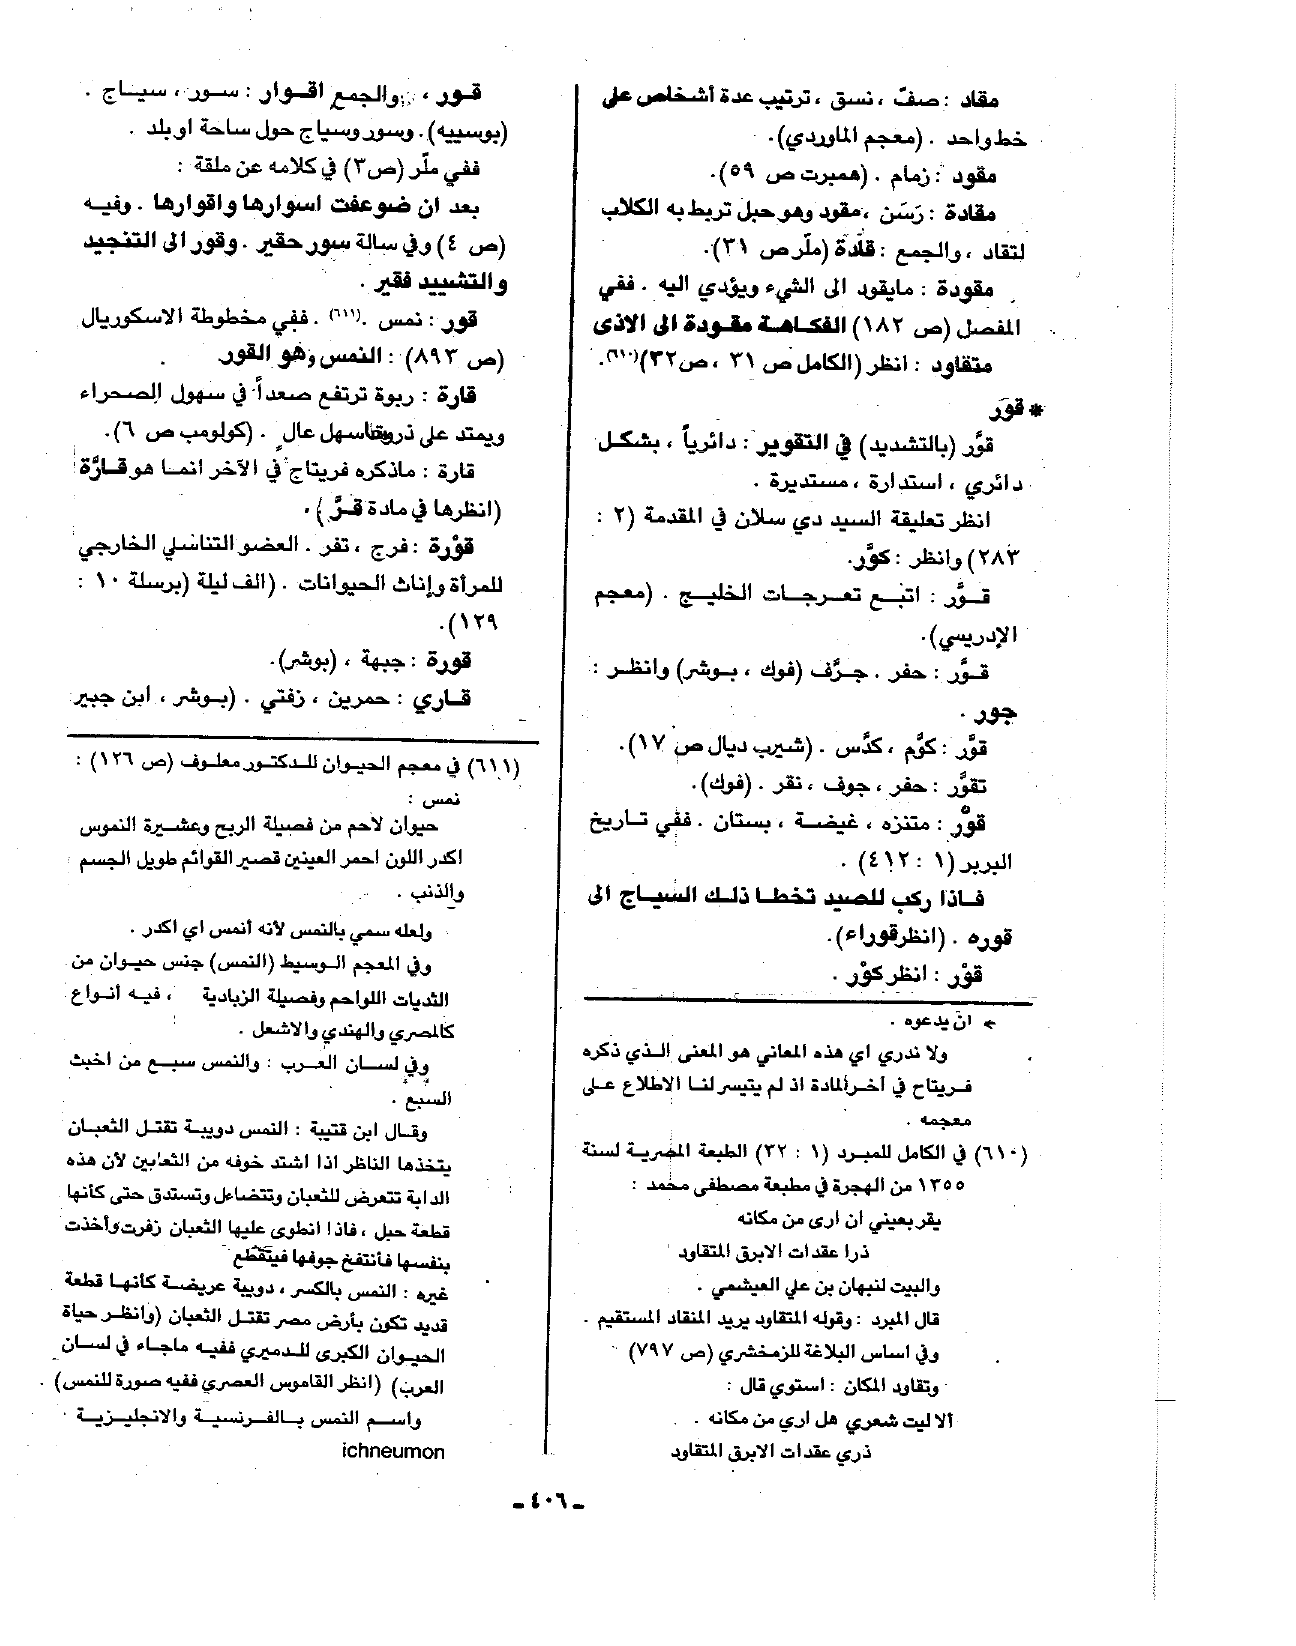 مقاد : صفّ ، نسق ، ترتيب عدة أشخاص على
خط واحد . (معجم الماوردي).
مقود : زمام . (همبرت ص ٥٩).
مقادة : رَسَن ، مقود وهو حبل تربط به الكلاب
لتقاد ، والجمع : قلادة (ملّر ص ٣١).
مقودة : مايقود الى الشيء ويؤدي اليه . ففي
المفصل (ص ١٨٢) الفكاهة مقودة الى الاذى
متقاود : انظر (الكامل ص ٣١ ، ص ٣٢)(٦١٠).
* قوّر
قوَّر (بالتشديد) في التقوير : دائرياً ، بشكل
دائري ، استدارة ، مستديرة .
انظر تعليقة السيد دي سلان في المقدمة (٢ :
٢٨٣) وانظر : كوَّر.
قوَّر : اتبع تعرجات الخليج . (معجم
الإدريسي).
قوَّر : حفر . جرَّف (فوك ، بوشر) وانظر :
جور .
قوَّر : كوَّم ، كدَّس . (شيرب ديال ص ١٧).
تقوَّر : حفر ، جوف ، نقر . (فوك).
قوْر : متنزه ، غيضة ، بستان . ففي تاريخ
البربر (١ : ٤١٢) .
فاذا ركب للصيد تخطا ذلك السياج الى
قوره . (انظر قوراء).
قوْر : انظر كوْر .
← ان يدعوه .
ولا ندري اي هذه المعاني هو المعنى الذي ذكره
فريتاج في آخر المادة اذ لم يتيسر لنا الاطلاع على
معجمه .
(٦١٠) في الكامل للمبرد (١ : ٣٢) الطبعة المصرية لسنة
١٣٥٥ من الهجرة في مطبعة مصطفى محمد :
يقر بعيني ان ارى من مكانه
ذرا عقدات الابرق المتقاود
والبيت لنبهان بن علي العبشمي .
قال المبرد : وقوله المتقاود يريد المنقاد المستقيم .
وفي اساس البلاغة للزمخشري (ص ٧٩٧)
وتقاود المكان : استوي قال :
ألا ليت شعري هل اري من مكانه .
ذري عقدات الابرق المتقاود
قور ، والجمع اقوار : سور ، سياج .
(بوسييه). وسور وسياج حول ساحة او بلد .
ففي ملّر (ص ٣) في كلامه عن ملقة :
بعد ان ضوعفت اسوارها واقوارها . وفيه
(ص ٤) وفي سالة سور حقير . وقور الى التنجيد
والتشييد فقير .
قور : نمس .(٦١١) . ففي مخطوطة الاسكوريال
(ص ٨٩٣) : النمس وهو القور .
قارة : ربوة ترتفع صعداً في سهول الصحراء
ويمتد على ذروتها سهل عالٍ . (كولومب ص ٦).
قارة : ماذكره فريتاج في الآخر انما هو قارَّة
(انظرها في مادة قرَّ) .
قوْرة : فرج ، ثفر . العضو التناسلي الخارجي
للمرأة وإناث الحيوانات . (الف ليلة (برسلة ١٠ :
١٢٩).
قورة : جبهة ، (بوشر).
قاري : حمرين ، زفتي . (بوشر ، ابن جبير
(٦١١) في معجم الحيوان للدكتور معلوف (ص ١٢٦) :
نمس :
حيوان لاحم من فصيلة الربح وعشيرة النموس
اكدر اللون احمر العينين قصير القوائم طويل الجسم
والذنب .
ولعله سمي بالنمس لأنه أنمس اي اكدر .
وفي المعجم الوسيط (النمس) جنس حيوان من
الثديات اللواحم وفصيلة الزبادية ، فيه أنواع
كالمصري والهندي والاشعل .
وفي لسان العرب : والنمس سبع من اخبث
السبع .
وقال ابن قتيبة : النمس دويبة تقتل الثعبان
يتخذها الناظر اذا اشتد خوفه من الثعابين لأن هذه
الدابة تتعرض للثعبان وتتضاءل وتستدق حتى كأنها
قطعة حبل ، فاذا انطوى عليها الثعبان زفرت وأخذت
بنفسها فأنتفخ جوفها فيتقطّع
غيره : النمس بالكسر ، دويبة عريضة كانها قطعة
قديد تكون بأرض مصر تقتل الثعبان (وانظر حياة
الحيوان الكبرى للدميري ففيه ماجاء في لسان
العرب) (انظر القاموس العصري ففيه صورة للنمس) .
واسم النمس بالفرنسية والانجليزية
ichneumon
ـ ٤٠٦ ـ